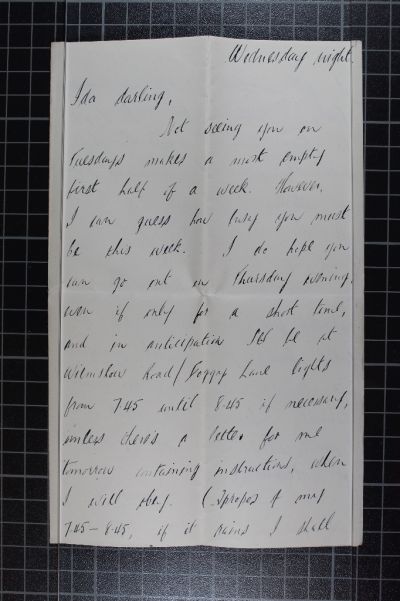 Wednesday night.
Ida darling,
Not seeing you on
Tuesdays makes a most empty
first half of a week. However,
I can guess how busy you must
be this week. I do hope you
can go out on Thursday evening,
even if only for a short time,
and in anticipation I'll be at
Wilmslow Road/Fogggy Lane lights
from 7.45 until 8.45 if necessary,
unless there's a letter for me
tomorrow containing instructions, when
I will obey. (Apropos of my
7.45 – 8.45, if it rains I shall